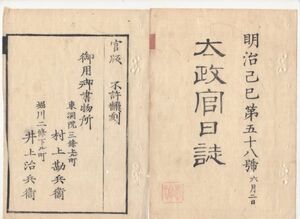 明治己巳第五十八號 六月二日
太政官日誌
官版 不許飜刻
御用御書物所
東洞院三條上町
村上勘兵衞
堀川二條下町
井上治兵衞